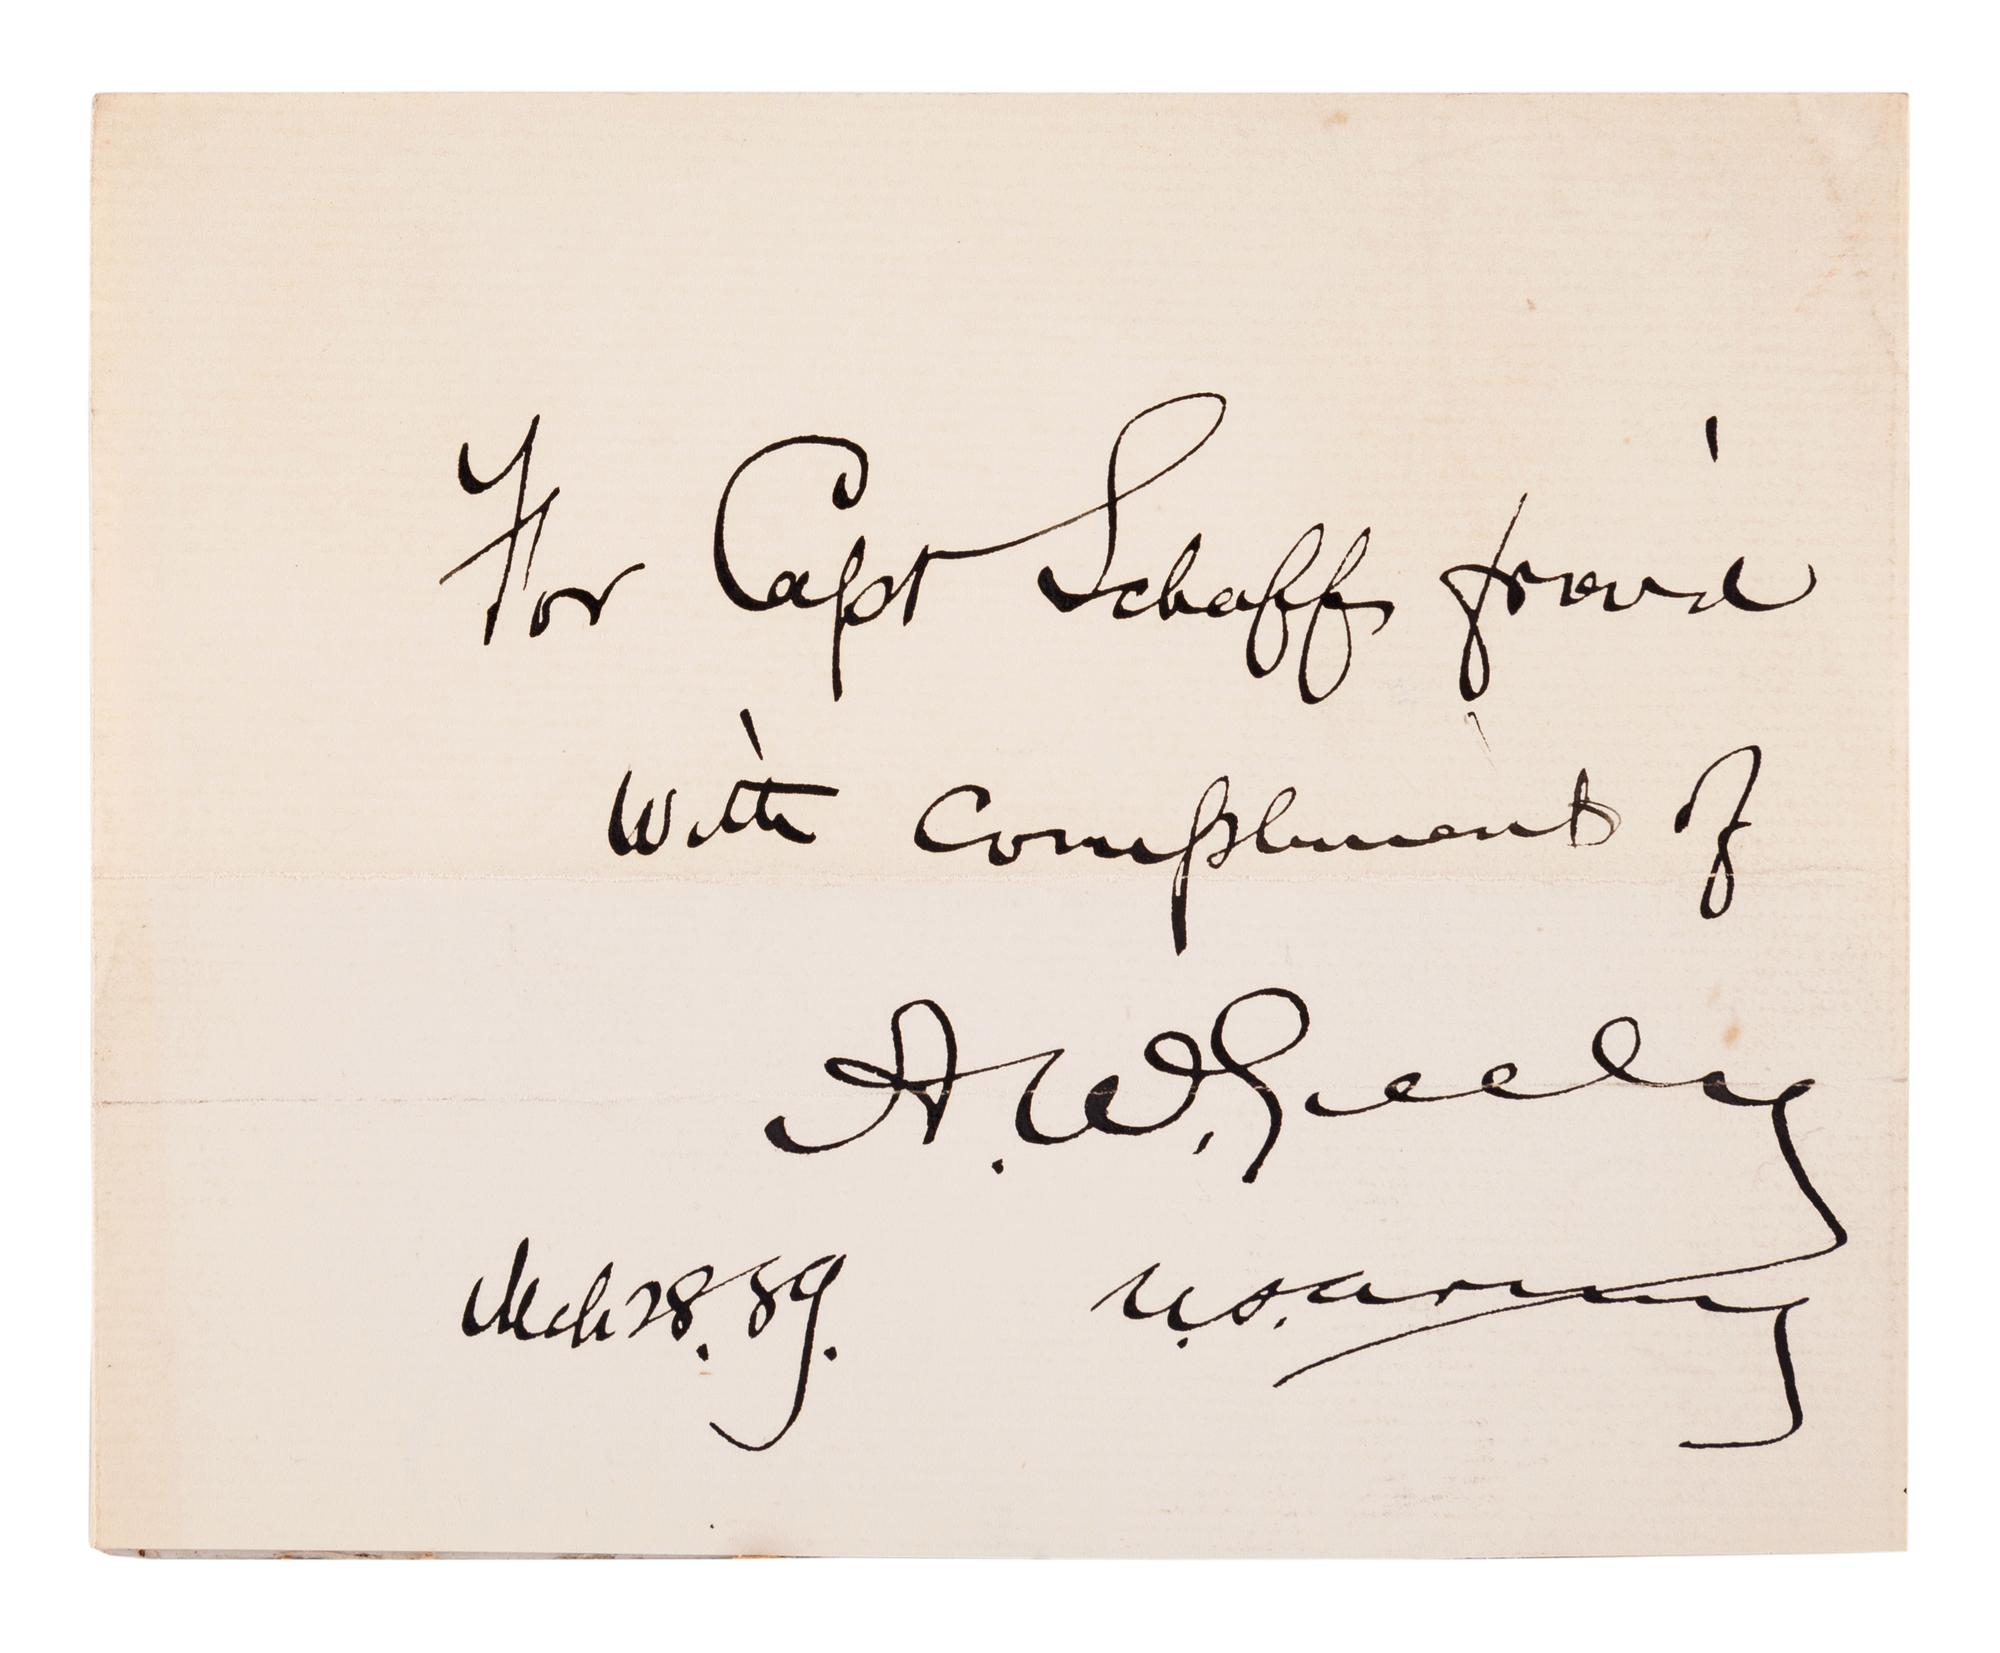 For Capt Schaff friend
with compliment of
A. W. Greely
Mch 28. 89. U.S. Army